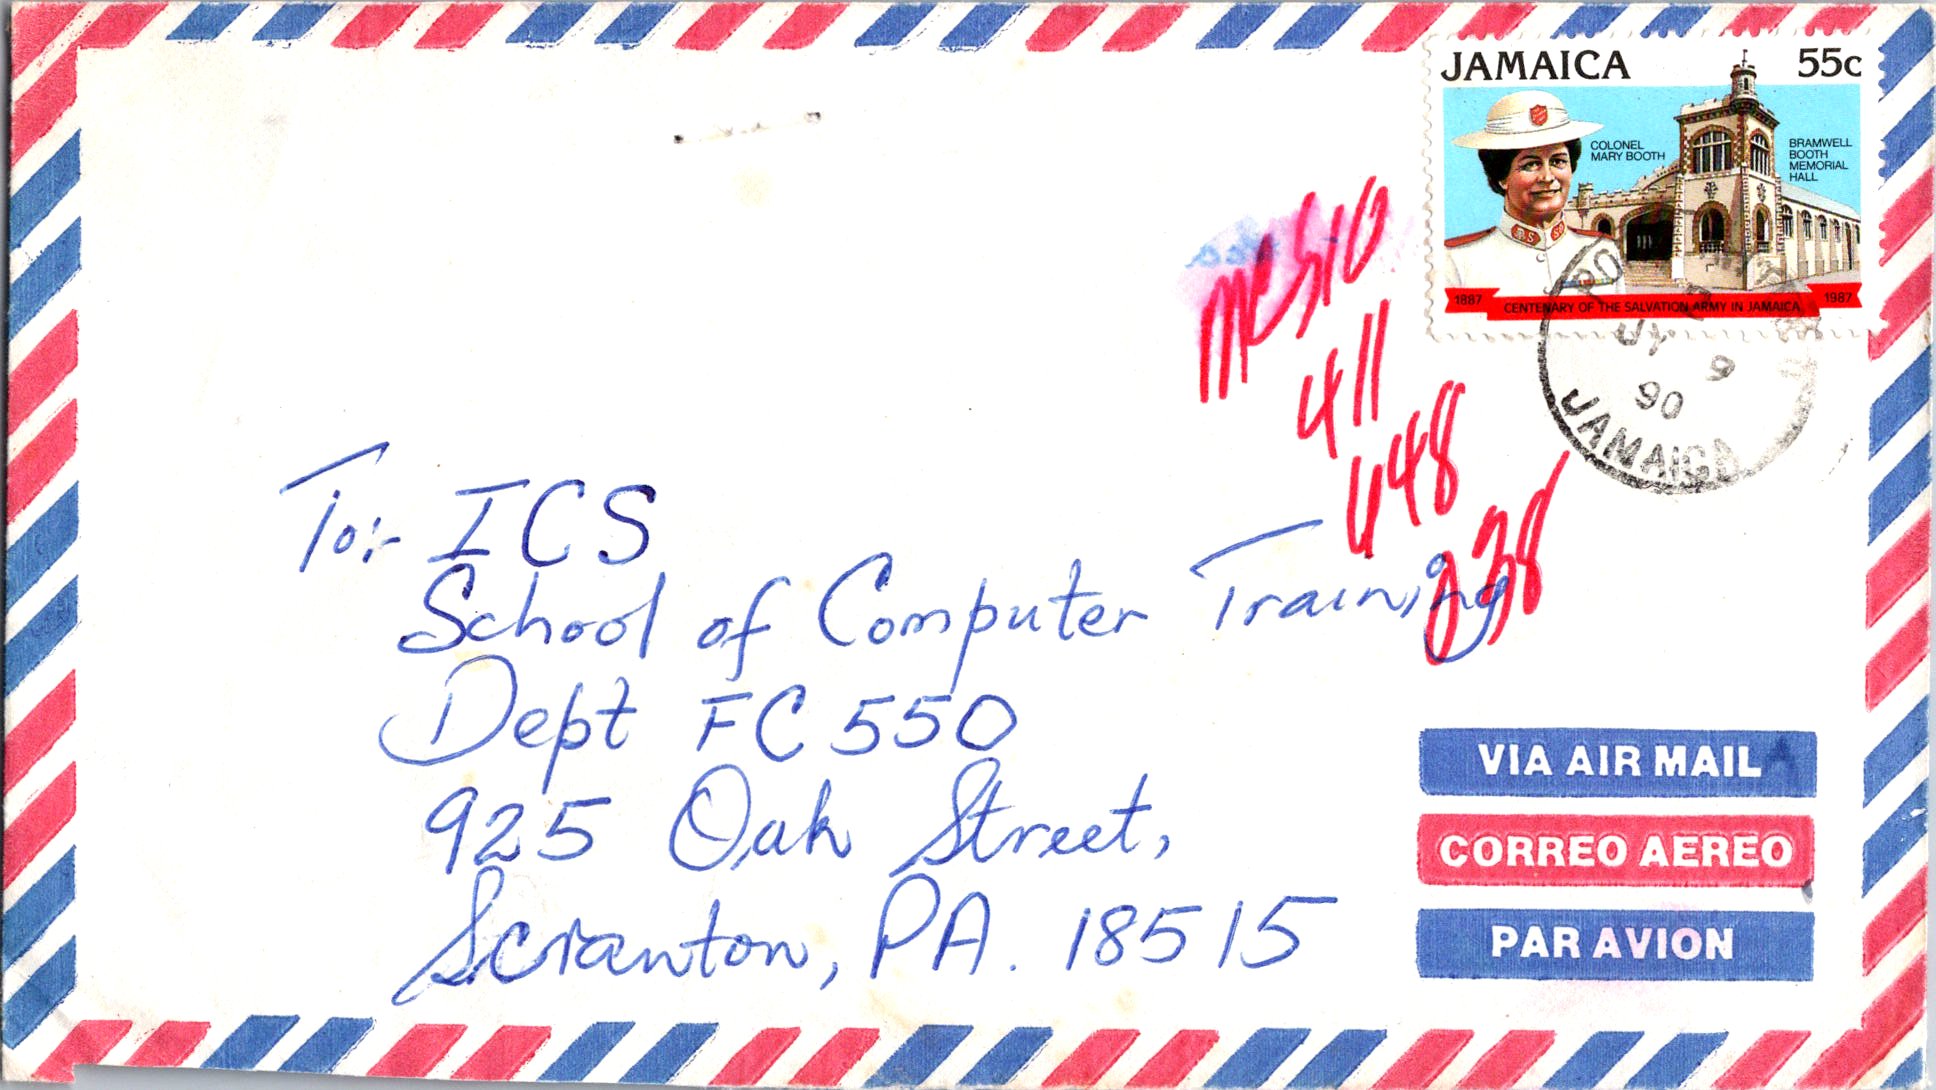 JAMAICA 55c
COLONEL
MARY BOOTH
BRAMWELL
BOOTH
MEMORIAL
HALL
1887 CENTENARY OF THE SALVATION ARMY IN JAMAICA 1987
JY 9
90
JAMAICA
411
448
238
To:- ICS
School of Computer Training
Dept FC 550
925 Oak Street,
Scranton, PA. 18515
VIA AIR MAIL
CORREO AEREO
PAR AVION